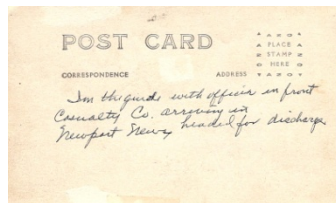 POST CARD
AZO
PLACE
STAMP
HERE
AZO
CORRESPONDENCE
ADDRESS
I'm the guide with officer in front
Casualty Co. arriving in
Newport News, headed for discharge